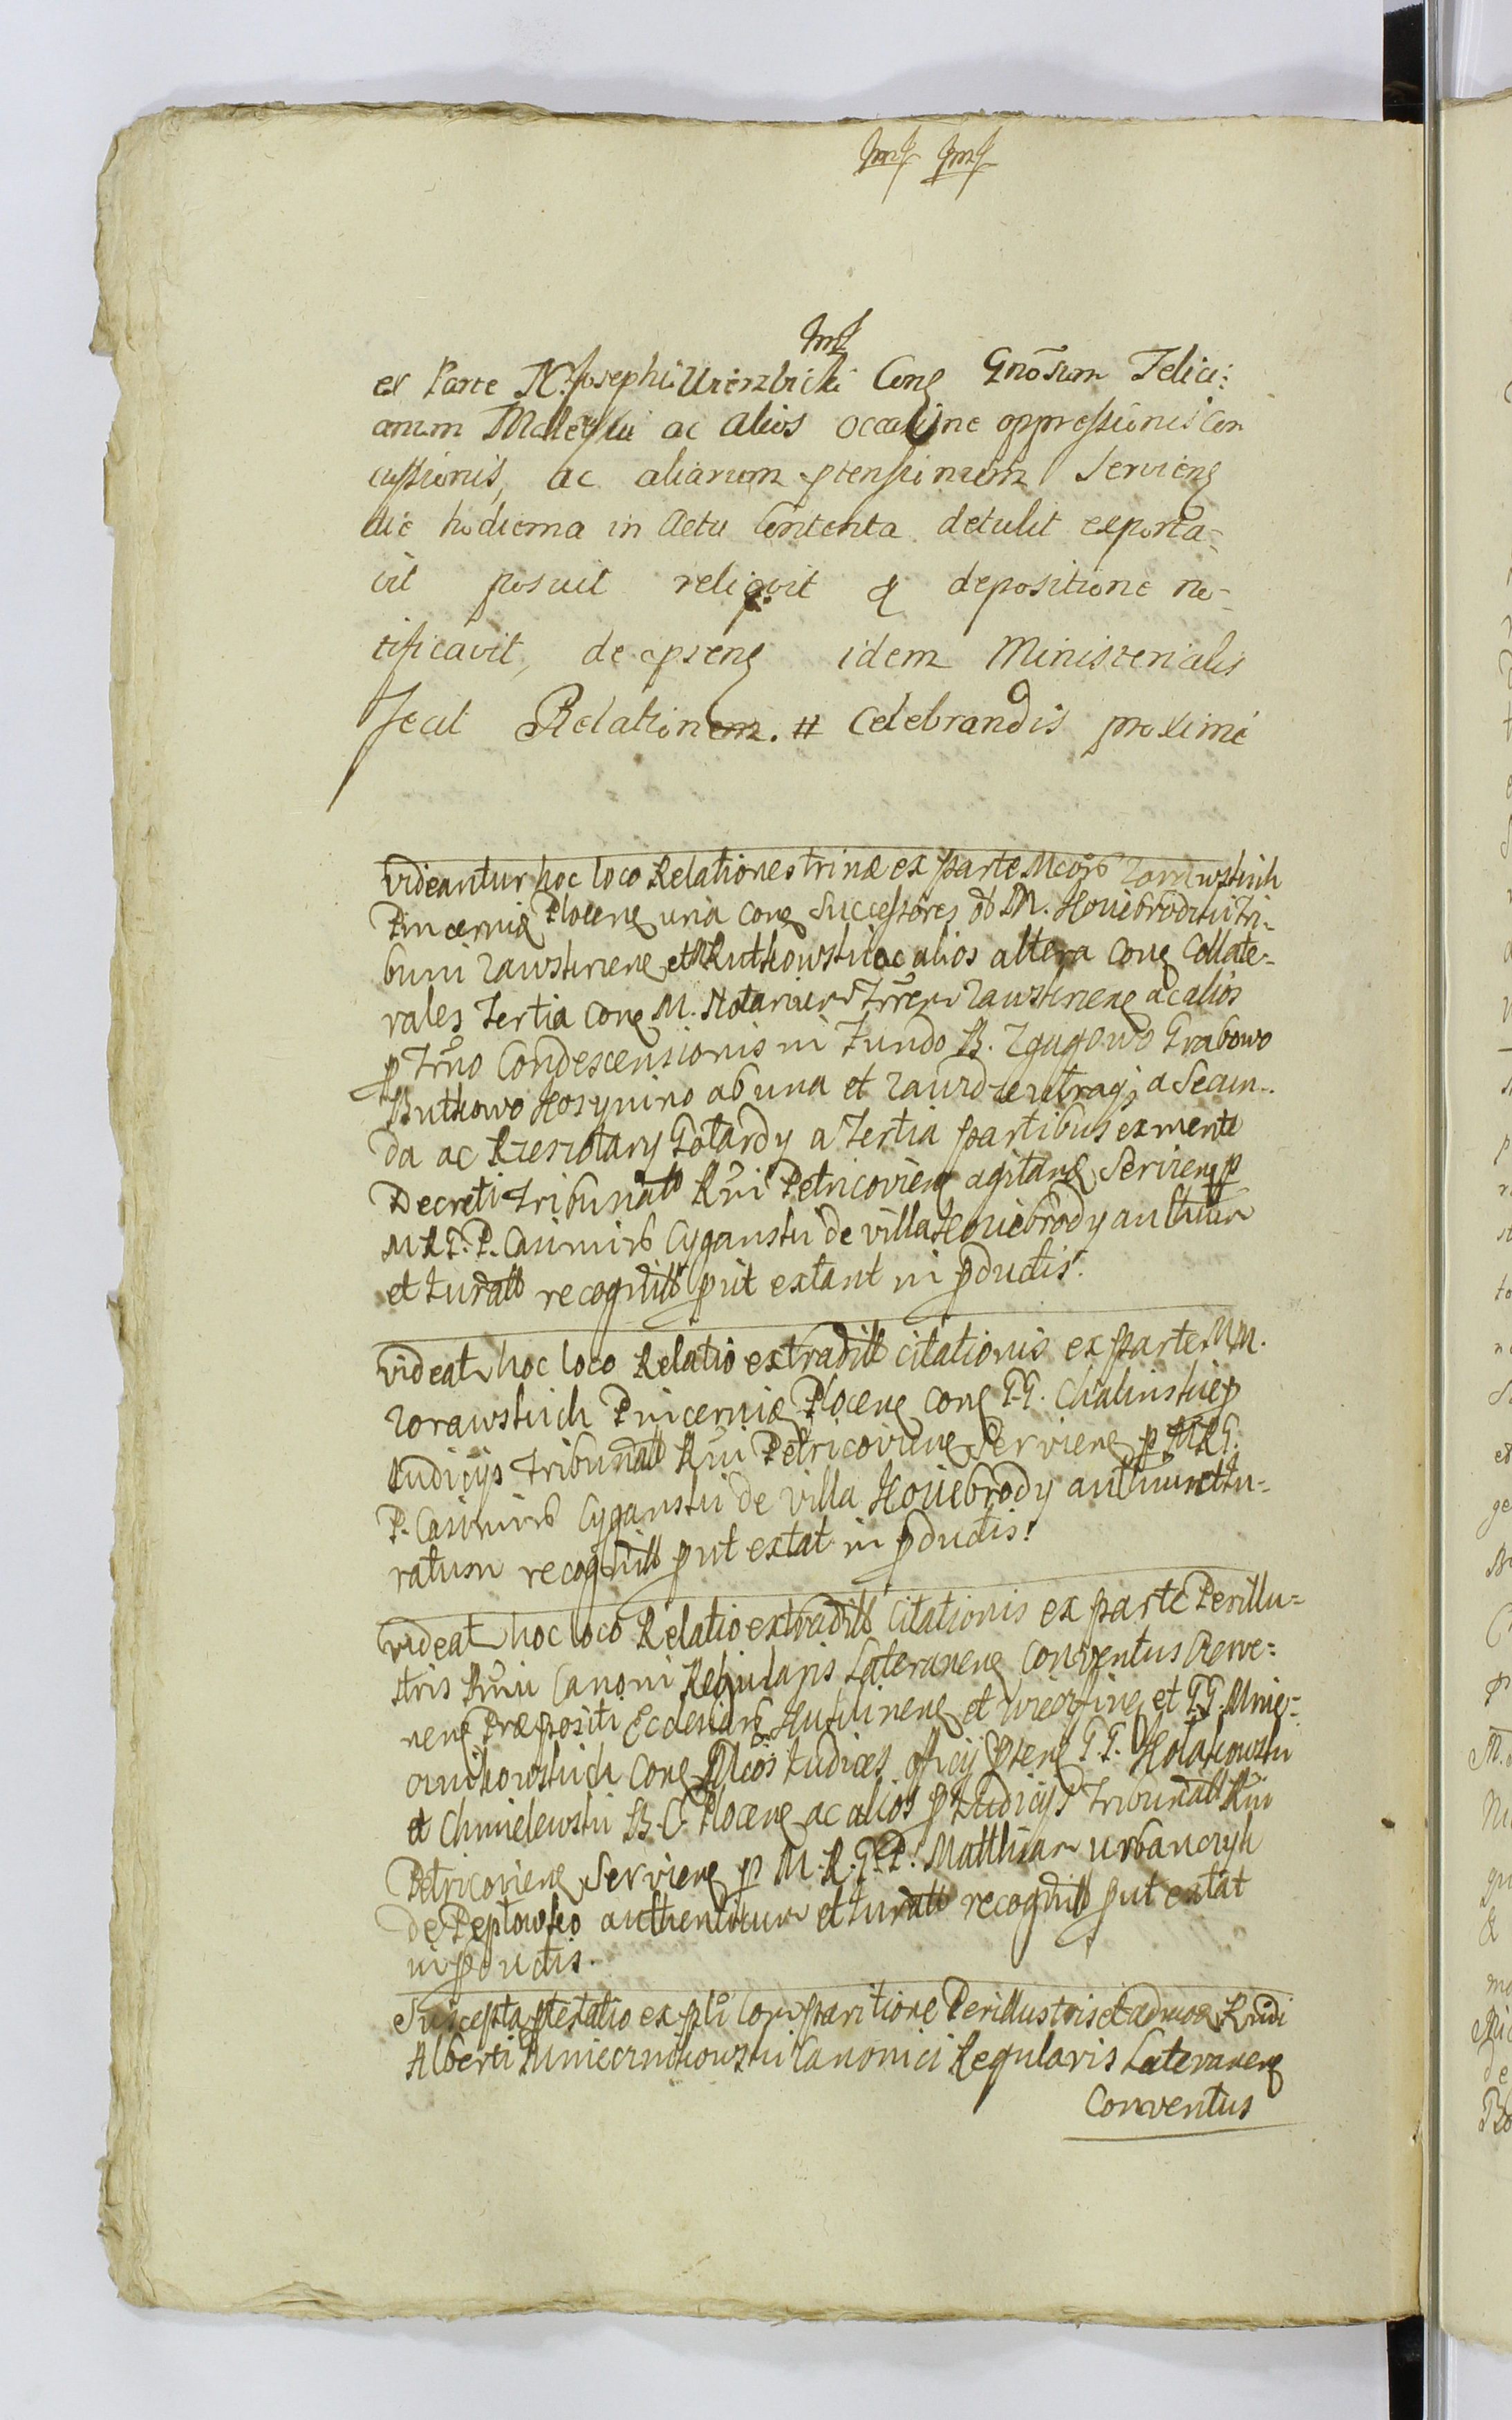 ex Parte N. Josephi Wierzbicki Conq Gnosum Felici:
anum Maleski ac alios occasione oppressionis con
cussionis, ac aliarum ptensionum Servienq
die hodierna in Actu Contenta detulit exporta-
vit posuit reliqvit & depositione no-
tificavit, de qprenq idem Ministerialis
fecit Relationem. # Celebrandis proximè
Videantur hoc loco Relationes trinæ ex parte Mcorum Zorawskich
Pincernia Plocenq una conq Successores ob M. Howiebrodzki Tri-
buni Zawskrnenq et Rutkowski ac alios altera conq Collate-
rales Tertia conq M. Notarium Trrem Zawskrnenq ac alios
p Trno Condescensionis in Fundo B. Zgagowo Grabowo
Rutkowo Kosynino ab una et utraq a Secun-
da ac Gotardy a Tertia partibus ex mente
Decreti Tribunalis Rni Petricovienq agitanq Servienq p
M R G. P. Casimirum Cyganski de villa Howiebrody authum
et Juratt recognitt put extant in pductis.
Videatr hoc loco Relatio extraditt citationis ex parte MM.
Zorawskich Pincerniæ Plocenq conq GG. Chalinskie p
Judicijs Tribunalt Rni Petricovienq Servienq p M R G.
P. Casimirum Cyganski de villa Howiebrody authum et Ju-
ratum recognitt put extat in pductis.
Videatr hoc loco Relatio extraditt Citationis ex parte Perillu-
stris Rndi Canoni Regularis Lateranenq Conventus Czerwe-
nenq Præpositi Ecclesiarum et et GG. Unie-
rznikowskich conq Mcos Judices officij ptenq GG. Kotakowski
et Chmielewski B. C. Plocenq ac alios p Judicijs Tribunalt Rni
Petricovienq Servienq p M. R. G. P. Matthiam Urbanczyk
de Peptowo authenticum et Juratt recognitt put extat
in pductis.
Suscepta ptestatio ex pti Comparitione Perillustris et admodum Rndi
Alberti Canonici Regularis Lateranenq
Conventus